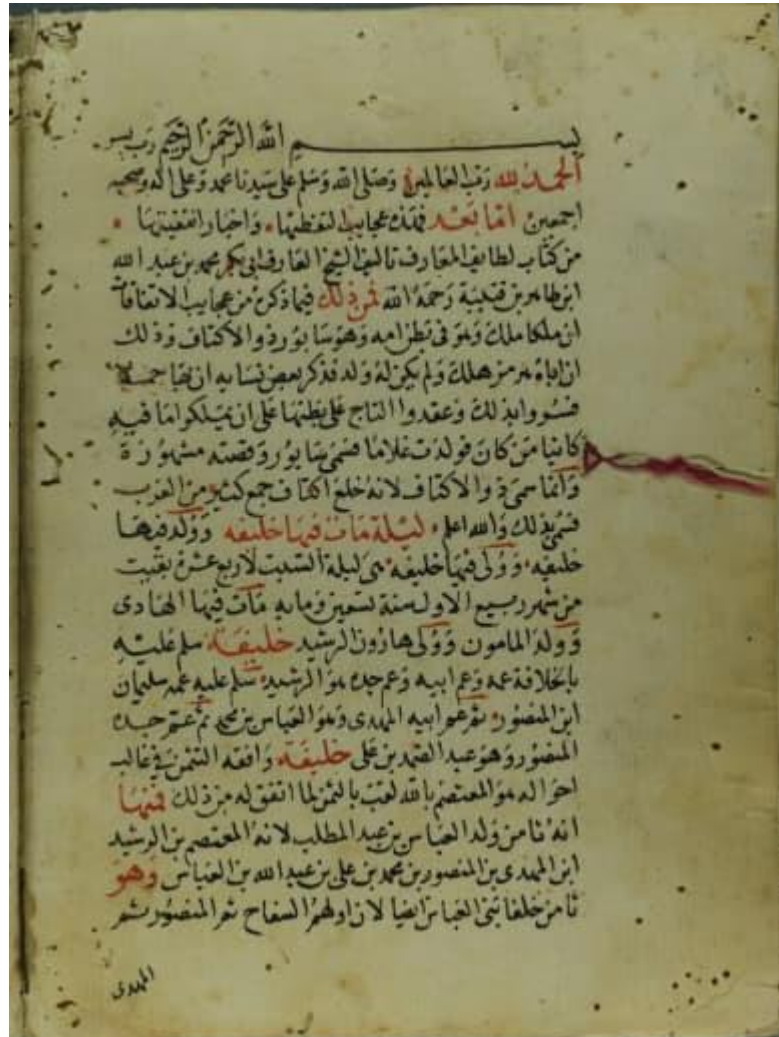 بســـــم الله الرحمن الرحيم رب يسر
الحمد لله رب العالمين وصلى الله وسلم على سيدنا محمد وعلى اله وصحبه
اجمعين اما بعد فهذه عجايب التقطتها واخبار انتقيتها
من كتاب لطايف المعارف تاليف الشيخ العارف ابى بكر محمد بن عبد الله
ابن طاهر بن قتيبة رحمه الله فمن ذلك فيما ذكره من عجايب الاتفاقات
ان ملكا ملك وهو فى بطن امه وهو سابور ذو الاكتاف وذلك
ان اباه هرمز هلك ولم يكن له ولد فذكر بعض نسايه ان بها حملا
فسروا بذلك وعقدوا التاج على بطنها على ان يملكوا ما فيه
كاينا من كان فولدت غلاما فسمى سابور وقصته مشهورة
وانما سمى ذو الاكتاف لانه خلع اكتاف جمع كثير من العرب
فسمى بذلك والله اعلم ليلة مات فيها خليفه وولد فيها
خليفه وولى فيها خليفه هى ليلة السبت لاربع عشرة بقيت
من شهر ربيع الاول سنة تسعين ومايه مات فيها الهادى
وولد المامون وولى هارون الرشيد خليفة سلم عليه
بالخلافة عمه وعم ابيه وعم جده هو الرشيد سلم عليه عمه سليمان
ابن المنصور ثم عم ابيه المهدى وهو العباس بن محمد ثم عم جده
المنصور وهو عبد الصمد بن على خليفة وافقه الثمن فى غالب
احواله هو المعتصم بالله لقب بالثمن لما اتفق له من ذلك فمنها
انه ثامن ولد العباس بن عبد المطلب لانه المعتصم بن الرشيد
ابن المهدى بن المنصور بن محمد بن على بن عبد الله بن العباس وهو
ثامن خلفا بنى العباس ايضا لان اولهم السفاح ثم المنصور ثم
المهدى